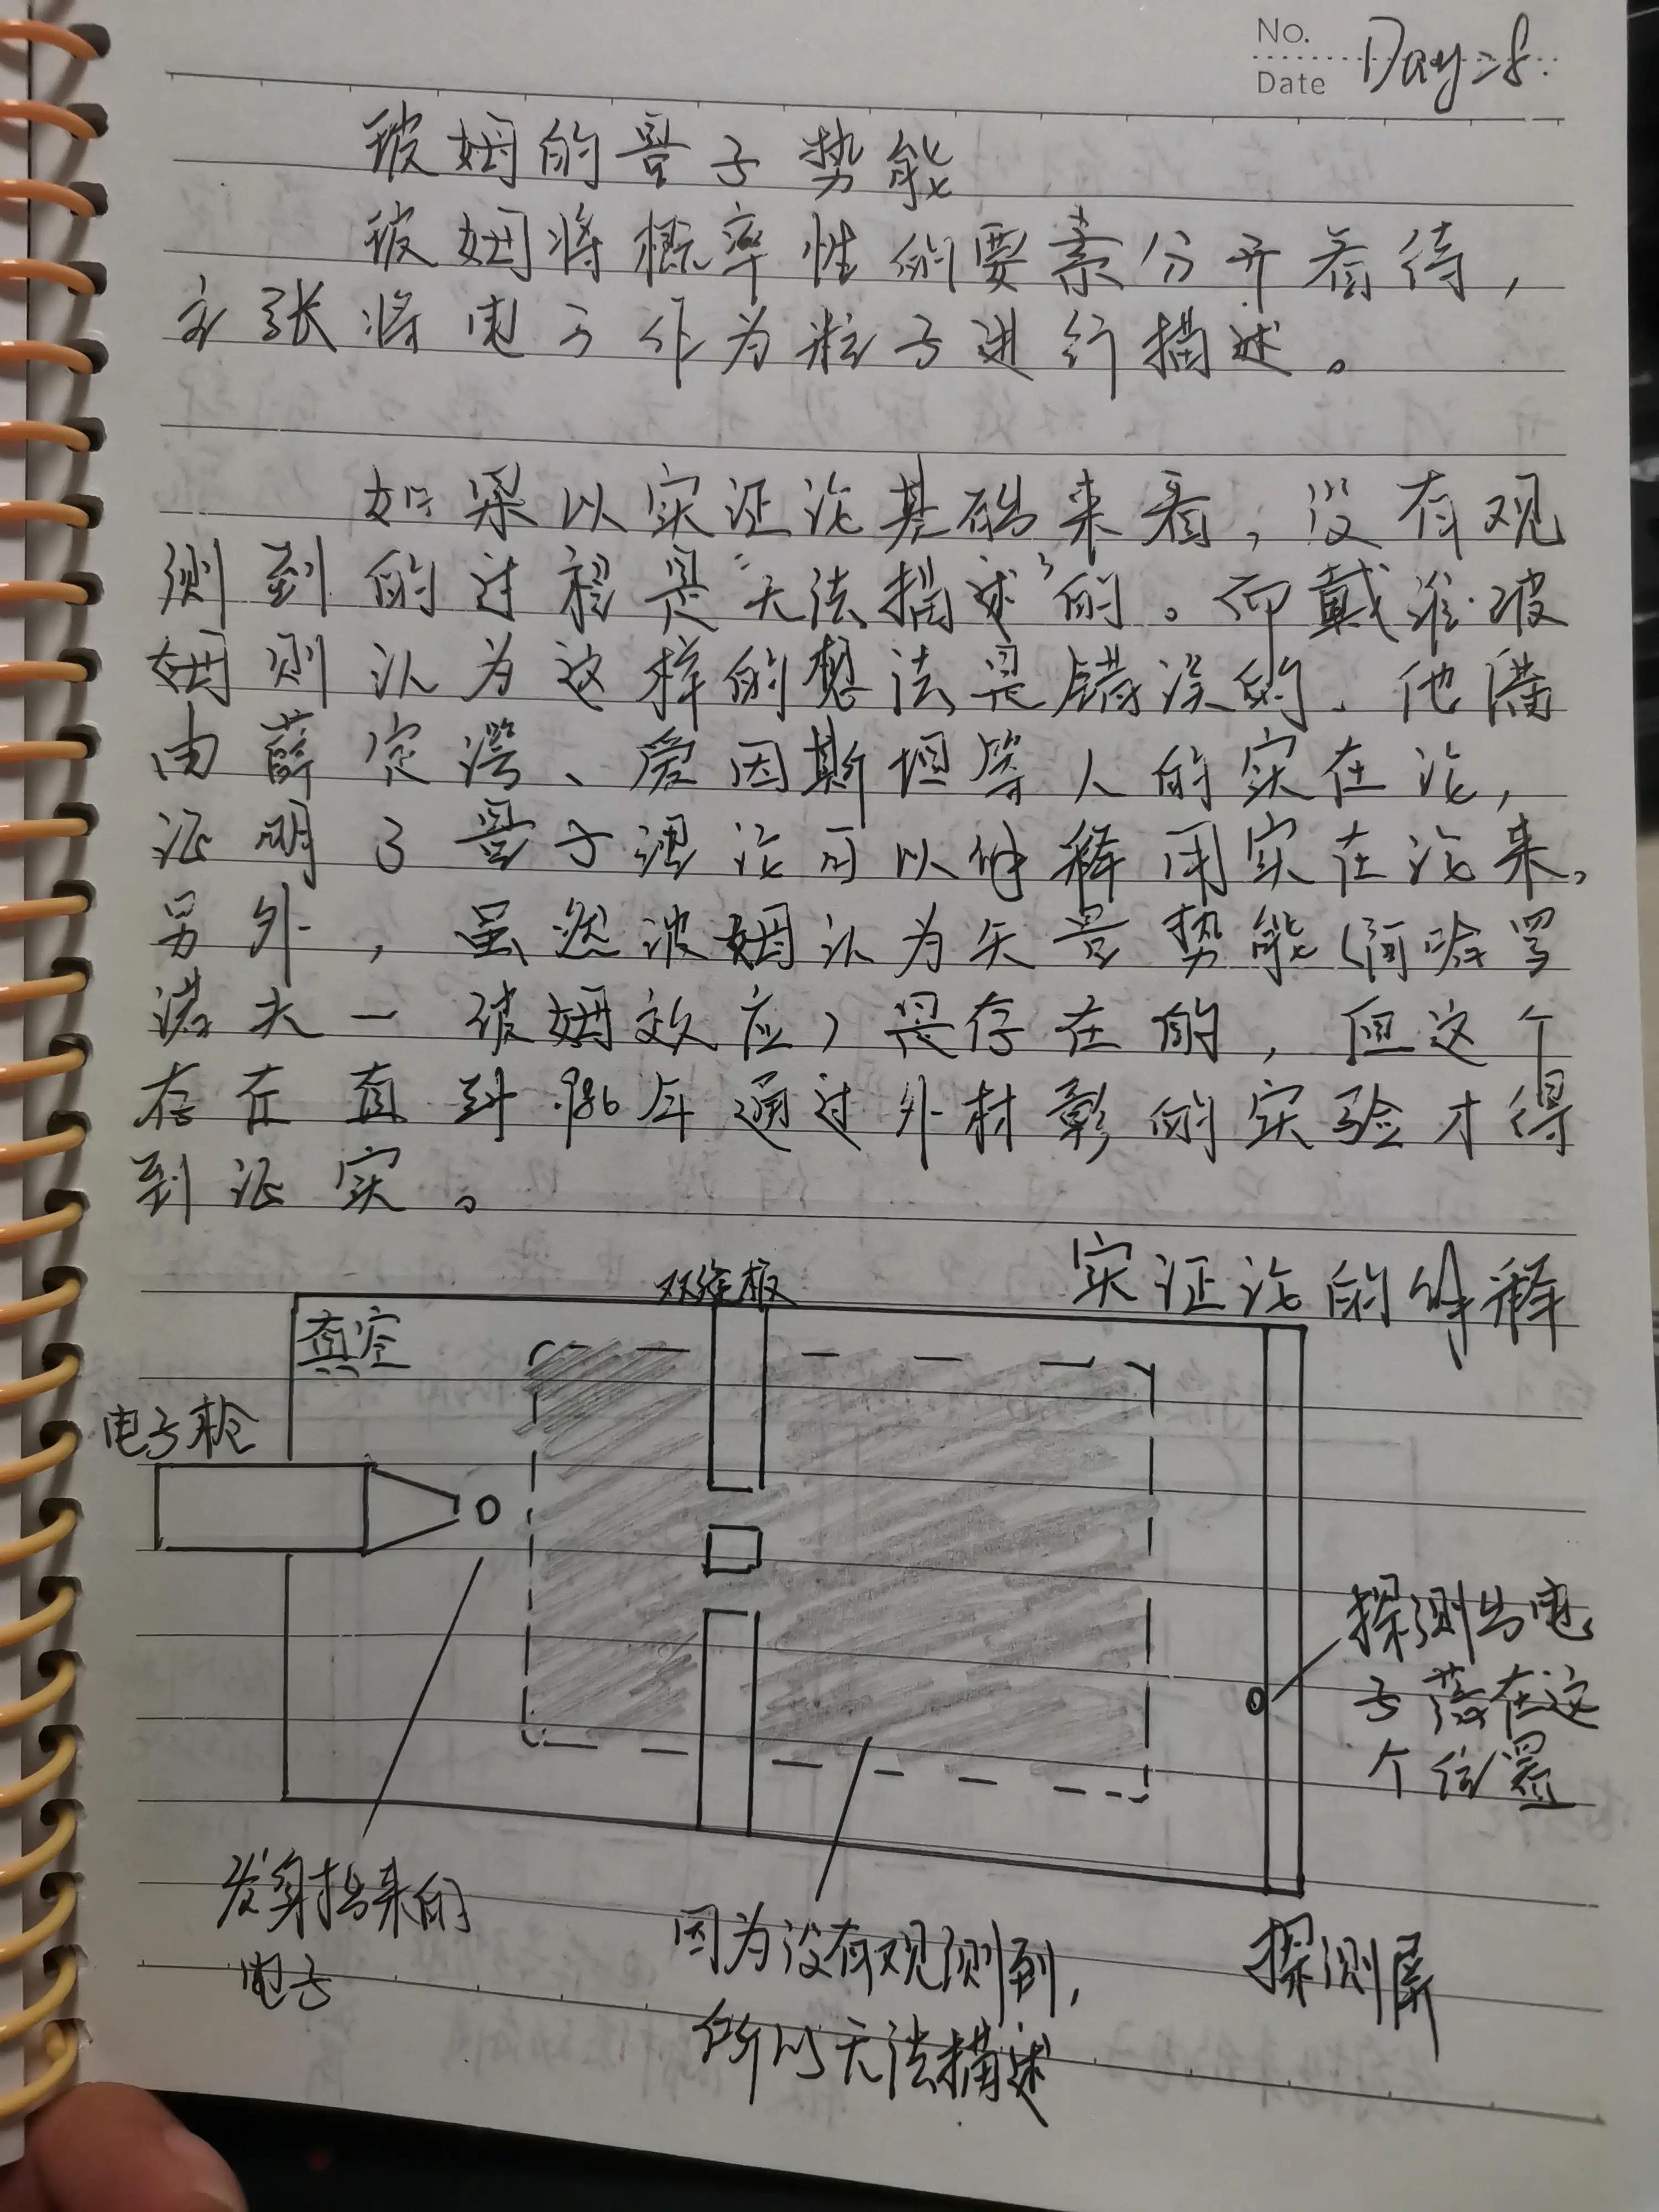 No.
Date Day-8.
玻姆的量子势能
玻姆将概率性的要素分开看待，
主张将电子作为粒子进行描述。
如果以实证论基础来看，没有观
测到的过程是“无法描述”的。而戴维·玻
姆则认为这样的想法是错误的。他借
由薛定谔、爱因斯坦等人的实在论，
证明了量子理论可以解释用实在论来。
另外，虽然波姆认为矢量势能（阿哈罗
诺夫一玻姆效应）是存在的，但这个
存在直到1986年通过外村彰的实验才得
到证实。
实证论的解释
双缝板
真空
电子枪
探测出电
子落在这
个位置
发射出来的
电子
因为没有观测到，
所以无法描述
探测屏